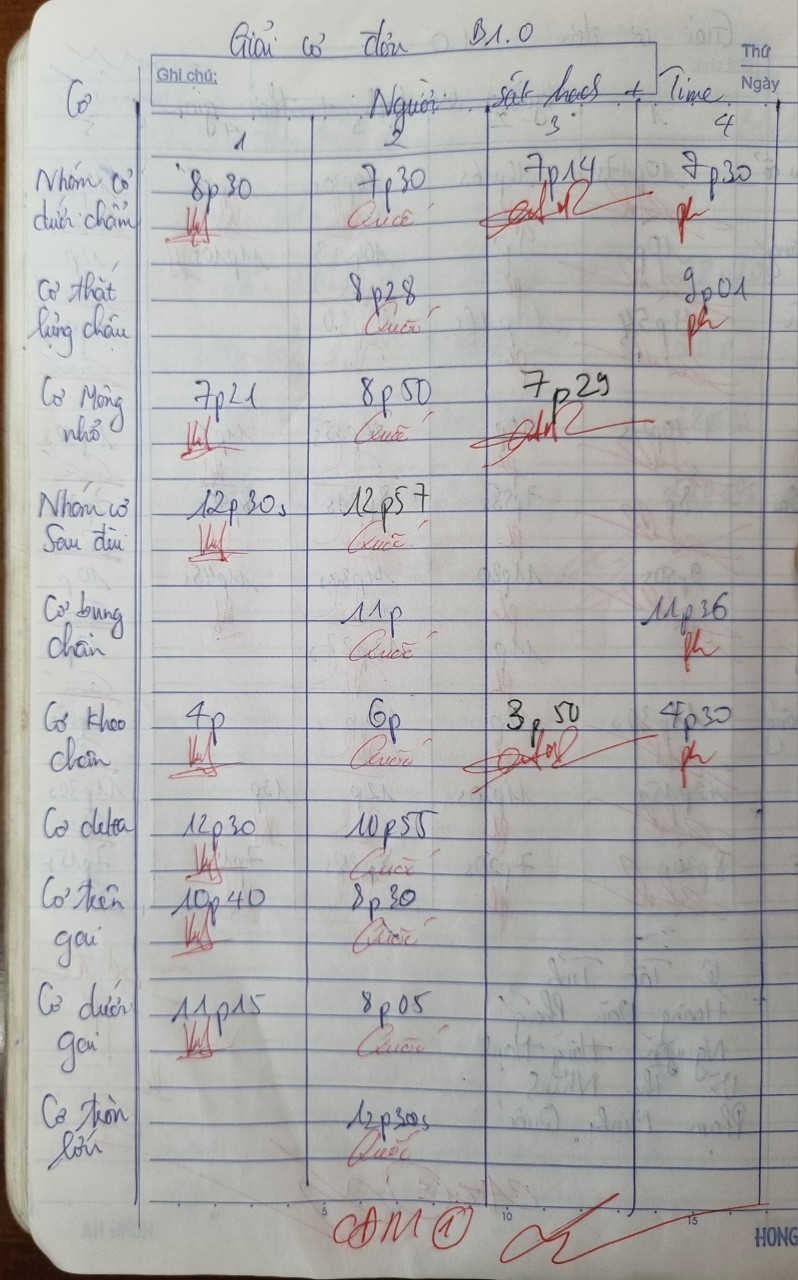 Giải cơ đơn B1.0
Thứ
Ghi chú:
Ngày
Cơ Người sát hạch + Time
1 2 3 4
Nhóm cơ 8p30 7p30 7p14 7p30
dưới chẩm Quốc
Cơ thắt 8p28 9p01
lưng chậu Quốc
Cơ Mông 7p21 8p50 7p29
nhỏ Quốc
Nhóm cơ 12p30s 12p57
Sau đùi Quốc
Cơ bụng 11p 11p36
chân Quốc
Cơ khoeo 4p 6p 3p50 4p30
chân Quốc
Cơ delta 12p30 10p55
Quốc
Cơ trên 10p40 8p30
gai Quốc
Cơ dưới 11p15 8p05
gai Quốc
Cơ tròn 12p30s
lớn Quốc
5 10 15
CAM 1
HONG